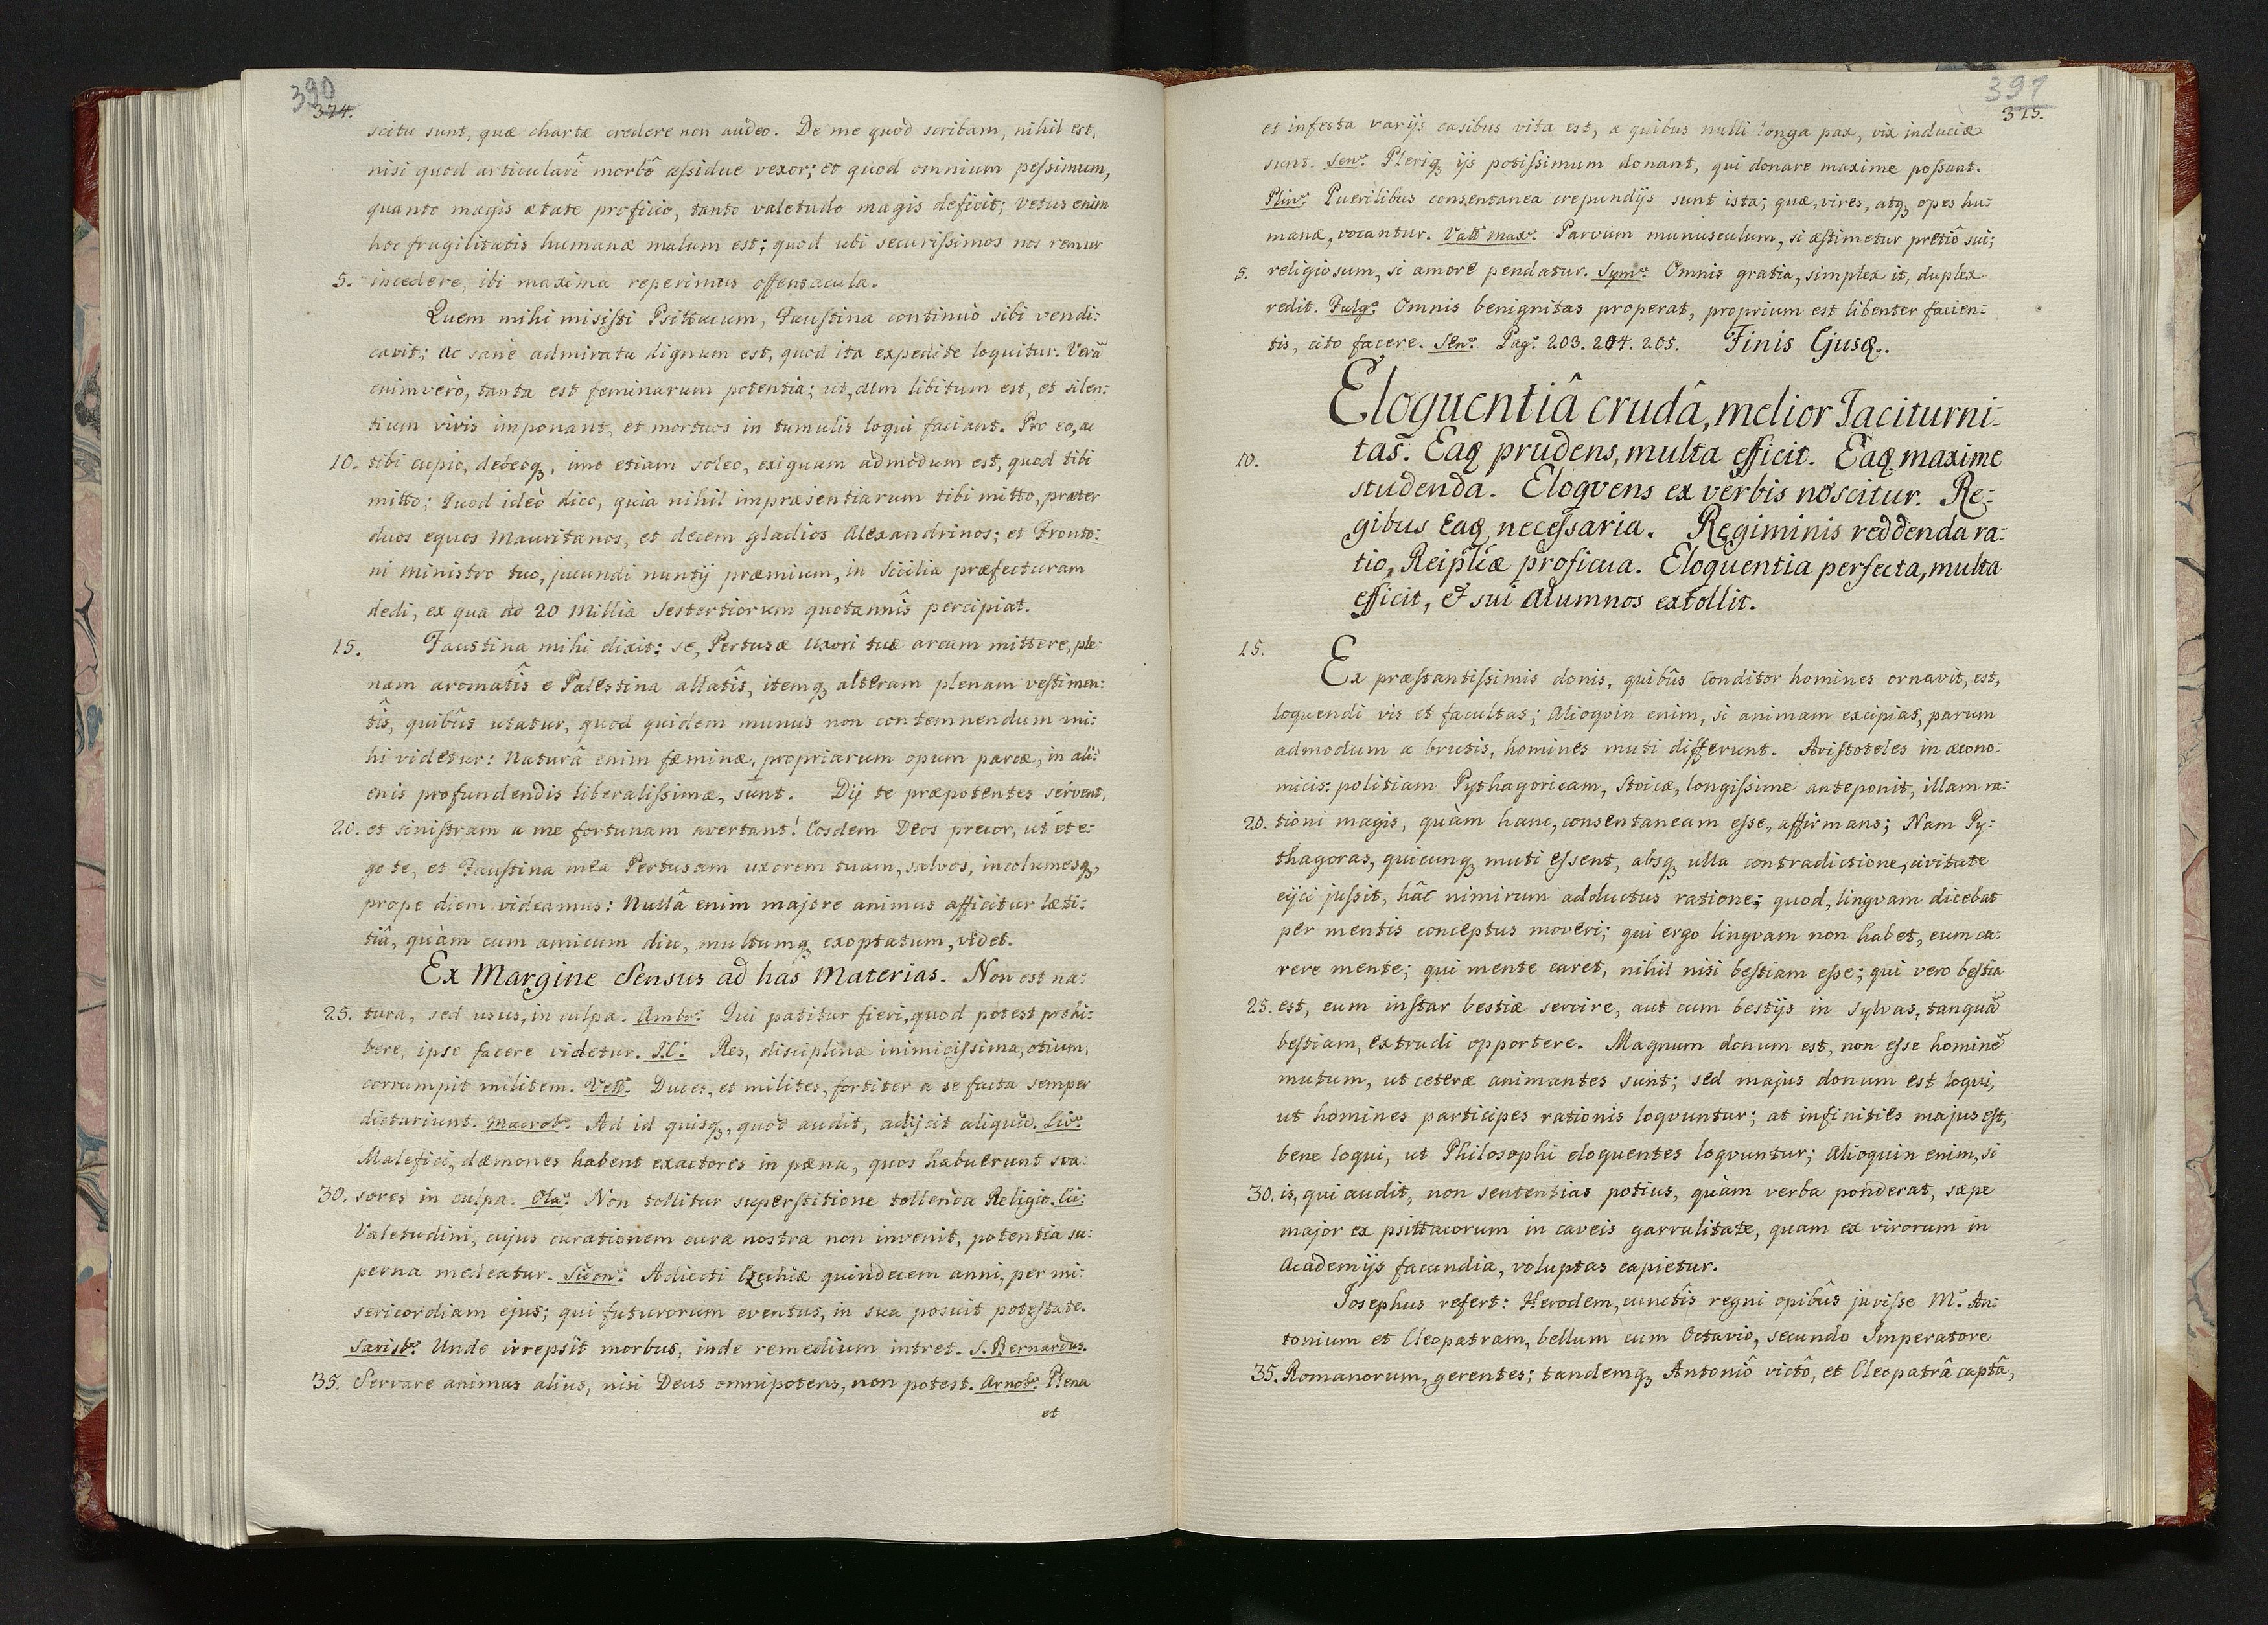 390
374.
scitu sunt, quæ chartæ credere non audeo. De me quod scribam, nihil est,
nisi quod articularî morbô aſsidue vexor; et quod omnium peſsimum,
quanto magis ætate proficio, tanto valetudo magis deficit; Vetus enim
hoc fragilitatis humanæ malum est; quod ubi securiſsimos nos remur
5. incedere, ibi maxima reperimus offensacula.
Quem mihi misiſti Psittacum, Fauſtina continuò sibi vendi:
cavit; Ac sanè admiratu dignum est, quod ita expedite loquitur. Verũ
enimverò, tanta est feminarum potentia; ut, cum libitum est, et silen:
tium vivis imponant, et mortuos in tumulis loqui faciant. Pro eo, ac
10. tibi cupio, debeoqꝫ, imo etiam soleo, exiguum admodum est, quod tibi
mitto; Quod ideò dico, quia nihil impræsentiarum tibi mitto, præter
duos equos Mauritanos, et decem gladios Alexandrinos; et Fronto:
ni Ministro tuo, jucundi nuntij præmium, in Sicilia præfecturam
dedi, ex qua ad 20 Millia Sestertiorum quotannîs percipiat.
15. Faustina mihi dixit: se, Pertusæ Uxori tuæ arcam mittere, ple:
nam aromatîs e Palestina allatîs, itemqꝫ alteram plenam veſtimen:
tîs, quibûs utatur, quod quidem munus non contemnendum mi:
hi videtur: Naturâ enim fæminæ, propriarum opum parcæ, in ali:
enis profundendis liberaliſsimæ, sunt. Dij te præpotentes servent,
20. et siniſtram a me fortunam avertant! Eosdem Deos precor, ut et e:
go te, et Fauſtina mea Pertusam uxorem tuam, salvos, incolumesqꝫ,
prope diem videamus: Nullâ enim majore animus afficitur læti:
tiâ, quàm cum amicum diu, multumqꝫ exoptatum, videt.
Ex Margine Sensus ad has Materias. Non est na:
25. tura, sed usus, in culpa. Ambr: Qui patitur fieri, quod potest prohi:
bere, ipse facere videtur. I.C: Res, disciplinæ inimiciſsima, otium,
corrumpit militem. Vell: Duces, et milites, fortiter a se facta semper
dictariunt. Macrob: Ad id quisqꝫ, quod audit, adijcit aliquid. Liv:
Malefici, dæmones habent exactores in pæna, quos habuerunt sva:
30. sores in culpa. Ola: Non tollitur superſtitione tollenda Religio. Cic:
Valetudini, cujus curationem cura nostra non invenit, potentia su:
perna medeatur. Sicon: Adiecti Ezechiæ quindecem anni, per mi:
sericordiam ejus; qui futurorum eventus, in sua posuit poteſtate.
Sarisb: Unde irrepsit morbus, inde remedium intret. S. Bernardus.
35. Servare animas alius, nisi Deus omnipotens, non potest. Arnob: Plena
et
391
375.
et infesta varijs casibus vita est, a quibus nulli longa pax, vix induciæ
sunt. Sen: Pleriqꝫ ijs potiſsimum donant, qui donare maxime poſsunt.
Plin: Puerilibus consentanea crepundijs sunt ista; quæ, vires, atqꝫ opes hu:
manæ, vocantur. Vall Max: Parvum munusculum, si æſtimetur pretiô sui;
5. religiosum, si amore pendatur. Sym: Omnis gratia, simplex it, duplex
redit. Fulg: Omnis benignitas properat, proprium est libenter facien:
tis, cito facere. Sen: Pag: 203. 204. 205. Finis Ejusqꝫ.
Eloquentiâ crudâ, melior Taciturni:
10. tas. Eaqꝫ prudens, multa efficit. Eaqꝫ maxime
studenda. Eloqvens ex verbis noscitur. Re:
gibus Eaqꝫ neceſsaria. Regiminis reddenda ra:
tio, Reiplicæ proficua. Eloquentia perfecta, multa
efficit, & sui Alumnos extollit.
15. Ex præſtantiſsimis donis, quibûs Conditor homines ornavit, est,
loquendi vis et facultas; Alioqvin enim, si animam excipias, parum
admodum a brutis, homines muti differunt. Ariſtoteles in æcono:
micis: politiam Pythagoricam, Stoicæ, longiſsime anteponit, illam ra:
20. tioni magis, quàm hanc, consentaneam eſse, affirmans; Nam Py:
thagoras, quicunqꝫ muti eſsent, absqꝫ ulla contradictione, civitate
eijci juſsit, hâc nimirum adductus ratione; quod, lingvam dicebat
per mentis conceptus moveri; qui ergo lingvam non habet, eum ca:
rere mente; qui mente caret, nihil nisi beſtiam eſse; qui vero beſtia
25. est, eum inſtar bestiæ servire, aut cum bestijs in sylvas, tanquã
beſtiam, extrudi opportere. Magnum donum est, non eſse hominẽ
mutum, ut ceteræ animantes sunt; sed majus donum est loqui,
ut homines participes rationis loqvuntur; at infinities majus eſt,
bene loqui, ut Philosophi eloquentes loqvuntur; Alioquin enim, si
30. is, qui audit, non sententias potius, quàm verba ponderat, sæpe
major ex psittacorum in caveis garrulitate, quam ex virorum in
Academijs facundia, voluptas capietur.
Josephus refert: Herodem, cunctîs regni opibûs juviſse M: An:
tonium et Cleopatram, bellum cum Octavio, secundo Imperatore
35. Romanorum, gerentes; tandemqꝫ Antoniô victô, et Cleopatrâ captâ,